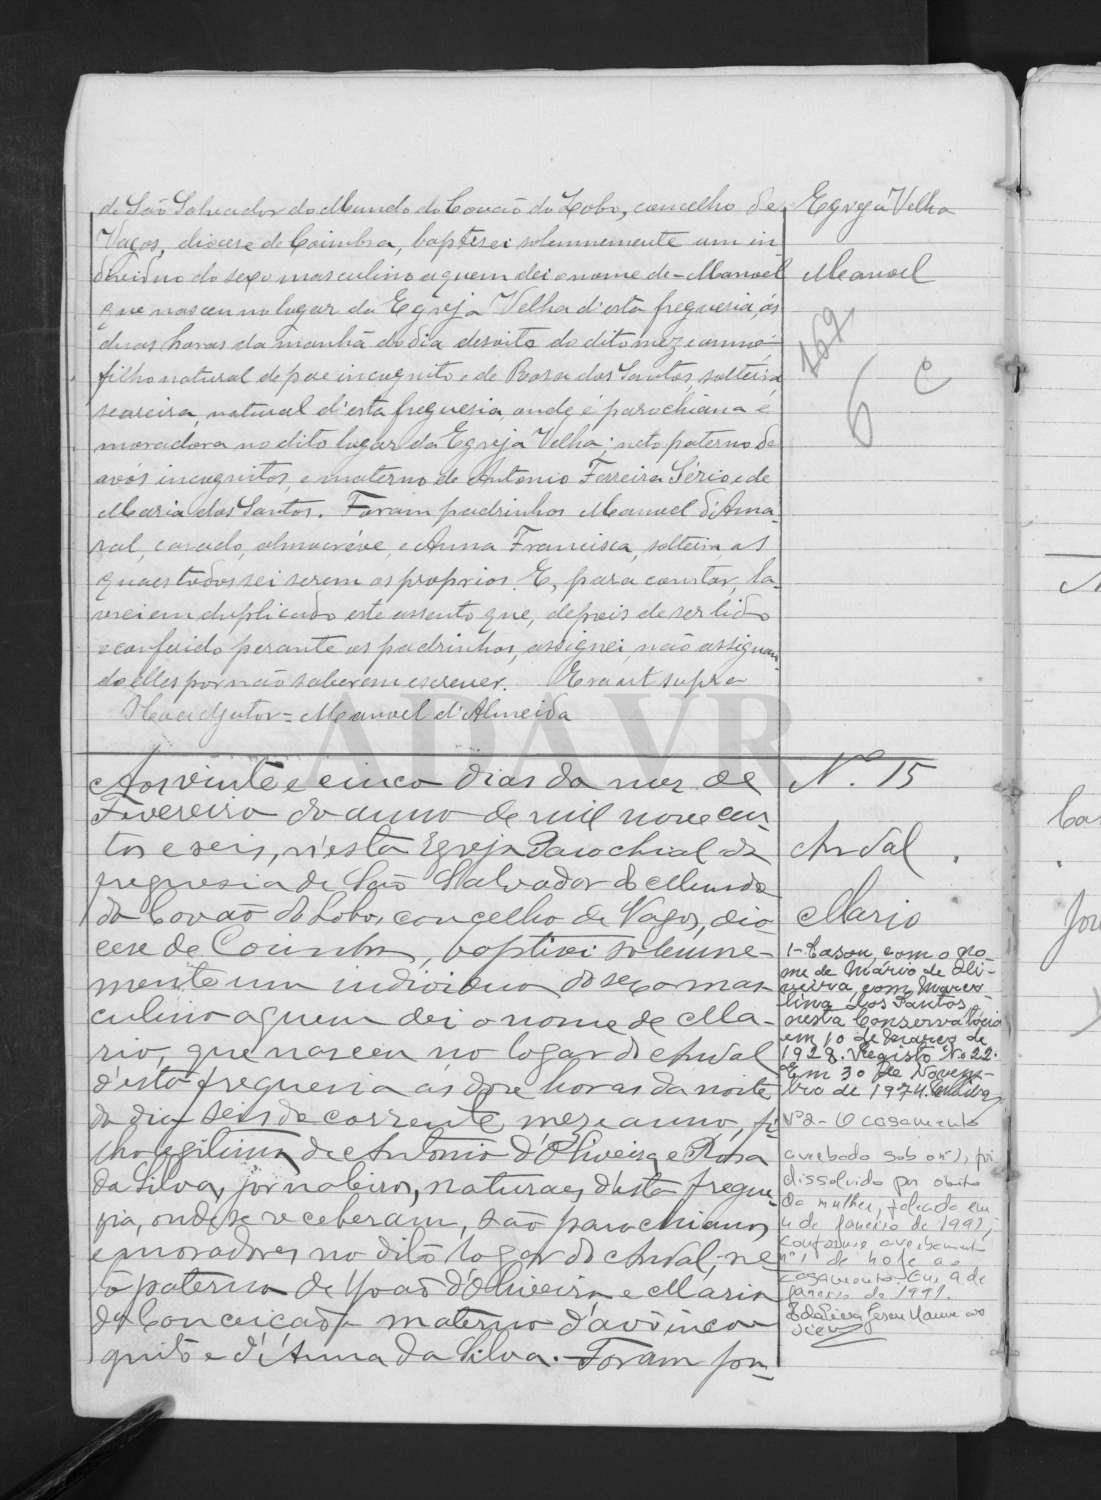 de São Salvador do Mundo do Covão do Lobo, concelho de
Vagos, diocese de Coimbra, baptisei solemnemente um in
dividuo do sexo masculino a quem dei o nome de - Manoel
que nasceu no lugar da Egreja Velha d'esta freguesia, ás
duas horas da manhã do dia desoito do dito mez e anno
filho natural de pae incognito e de Rosa dos Santos, solteira
seareira, natural d'esta freguesia, onde é parochiana e
moradora no dito lugar da Egreja Velha; neto paterno de
avós incognitos, e materno de Antonio Ferreira Sério e de
Maria dos Santos. Foram padrinhos Manoel d'Ama-
ral, casado, almocréve, e Anna Francisca, solteira, os
quaes todos sei serem os proprios. E, para constar, la-
vrei em duplicado este assento que, depois de ser lido
e conferido perante os padrinhos, assignei, não assignan-
do elles por não saberem escrever. Era ut supra
O Coadjutor = Manoel d'Almeida
Egreja Velha
Manoel
169
6 C
ADAVR
Aos vinte e cinco dias do mez de
Fevereiro do anno de mil nove cen-
tos e seis, n'esta Egreja Parochial da
freguesia de São Salvador do Mundo
do Covão do Lobo, concelho de Vagos, dio
cese de Coimbra, baptisei solemne-
mente um individuo do sexo mas
culino a quem dei o nome de Ma-
rio, que nasceu no logar do Andal
d'esta freguesia ás doze horas da noite
do dia seis do corrente mez e anno, fi
lho legitimo de Antonio d'Oliveira e Rosa
da Silva, jornaleiros, naturaes d'esta fregue-
sia, onde se receberam, são parochianos
e moradores no dito logar do Andal; ne
to paterno de João d'Oliveira e Maria
da Conceição materno d'avô incog
nito e d'Anna da Silva. Foram pa-
Nº 15
Andal
Mario
1- Casou, com o no-
me de Mário de Oli-
veira, com Marce-
lina dos Santos,
nesta Conservatória
em 10 de Março de
1928. Registo Nº 22.
Em 30 de Novem-
bro de 1974.
Nº 2 - O casamento
averbado sob o nº 1, foi
dissolvido por óbito
da mulher, falecida em
4 de Janeiro de 1991,
conforme averbamento
nº 1 de hoje ao
casamento. Em, 9 de
Janeiro de 1991.